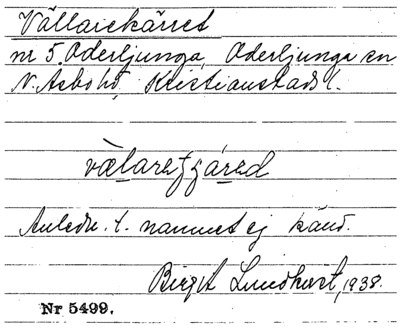 Vällarekärret
nr 5 Oderljunga, Oderljunga sn
N. Åsbo hd, Kristianstads l.
vælaretjäred
Anledn. t. namnet ej känd.
Birgit Lundkvist, 1938.
Nr 5499.